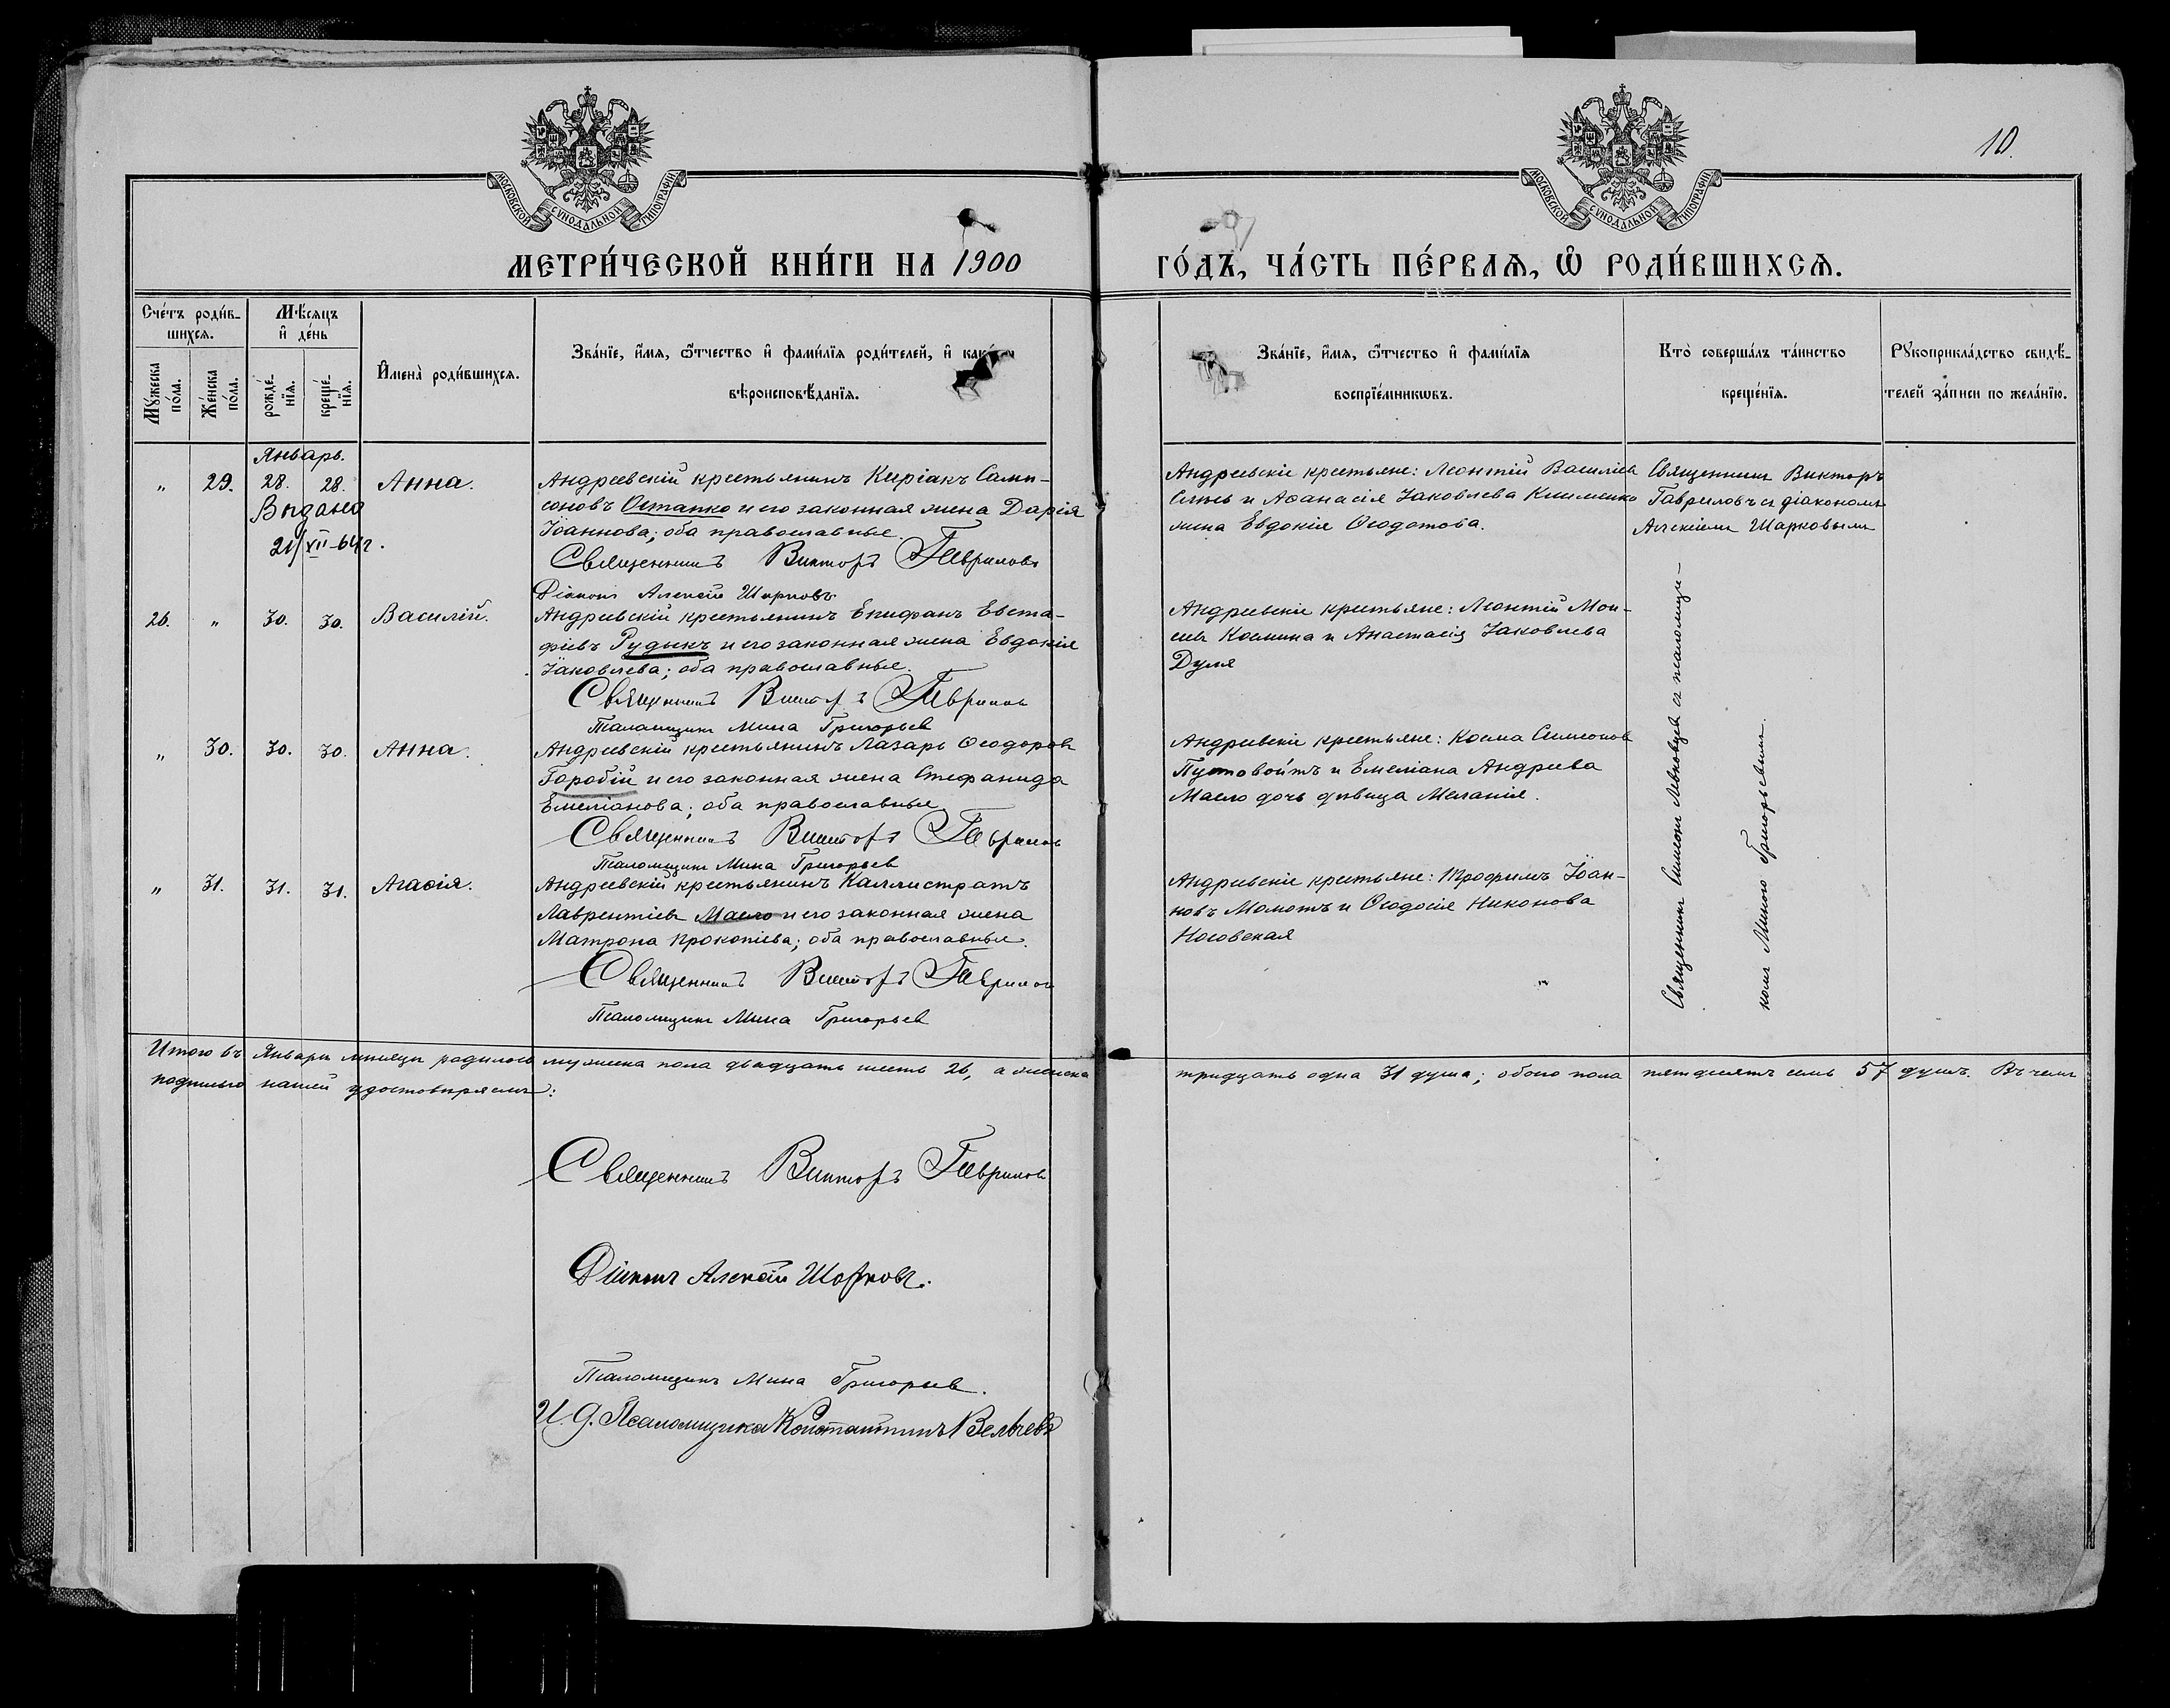 10.
МОСКОВСКОЙ СѴНОДАЛЬНОЙ ТИПОГРАФІИ
МОСКОВСКОЙ СѴНОДАЛЬНОЙ ТИПОГРАФІИ
МЕТРИ́ЧЕСКОЙ КНИ́ГИ НА 1900
ГО́ДЪ, ЧА́СТЬ ПЕ́РВАѦ, Ѡ҆ РОДИ́ВШИХСѦ.
Сче́тъ роди́в-
шихсѧ.
Мꙋ́жеска по́ла.
Же́нска по́ла.
Мѣ́сѧцъ
и҆ де́нь
рожде́-
нїѧ.
креще́-
нїѧ.
И҆мена̀ роди́вшихсѧ.
Зва́нїе, и҆́мѧ, ѻ҆́тчество и҆ фами́лїѧ роди́телей, и҆
вѣроисповѣ́данїѧ.
Зва́нїе, и҆́мѧ, ѻ҆́тчество и҆ фами́лїѧ
воспрїе́мникѡвъ.
Кто̀ соверша́лъ та́инство
креще́нїѧ.
Рꙋкоприкла́дство свидѣ́-
телей за́писи по жела́нїю.
Январь.
" 29. 28. 28. Анна.
Выдано
21/XII-64 г.
Андреевскій крестьянинъ Киріакъ Самп-
соновъ Остапко и его законная жена Дарія
Іоаннова; оба православные.
Священникъ Викторъ Гавриловъ
Діаконъ Алексій Шарковъ
Андреевскіе крестьяне: Леонтій Василіевъ
и Аѳанасія Іаковлева Клименко
жена Евдокія Ѳеодотова.
Священникъ Викторъ
Гавриловъ съ діакономъ
Алексіемъ Шарковымъ
26. " 30. 30. Василій.
Андреевскій крестьянинъ Епифанъ Евста-
фіевъ Рудыкъ и его законная жена Евдокія
Іаковлева; оба православные.
Священникъ Викторъ Гавриловъ
Псаломщикъ Мина Григорьев
Андреевскіе крестьяне: Леонтій Мои-
сеевъ Космина и Анастасія Іаковлева
Дуля
" 30. 30. 30. Анна.
Андреевскій крестьянинъ Лазарь Ѳеодоровъ
Горобій и его законная жена Стефанида
Емеліанова; оба православные
Священникъ Викторъ Гавриловъ
Псаломщикъ Мина Григорьев
Андреевскіе крестьяне: Косма Симеоновъ
Пустовойтъ и Емеліана Андреева
Масло дочь дѣвица Меланія.
" 31. 31. 31. Агаѳія.
Андреевскій крестьянинъ Каллистратъ
Лаврентіевъ Масло и его законная жена
Матрона Прокопіева; оба православные.
Священникъ Викторъ Гавриловъ
Псаломщикъ Мина Григорьев
Андреевскіе крестьяне: Трофимъ Іоан-
новъ Момотъ и Ѳеодосія Никонова
Носовская
Священникъ Симеонъ Левковцев съ псаломщи-
комъ Миною Григорьевымъ.
Итого въ Январѣ мѣсяцѣ родилось мужеска пола двадцать шесть 26, а женска тридцать одна 31 душа; обоего пола пятдесятъ семь 57 душъ. Въ чемъ
подписью нашей удостовѣряемъ:
Священникъ Викторъ Гавриловъ
Діаконъ Алексій Шарковъ.
Псаломщикъ Мина Григорьев.
И. д. Псаломщика Константинъ Вельчевъ